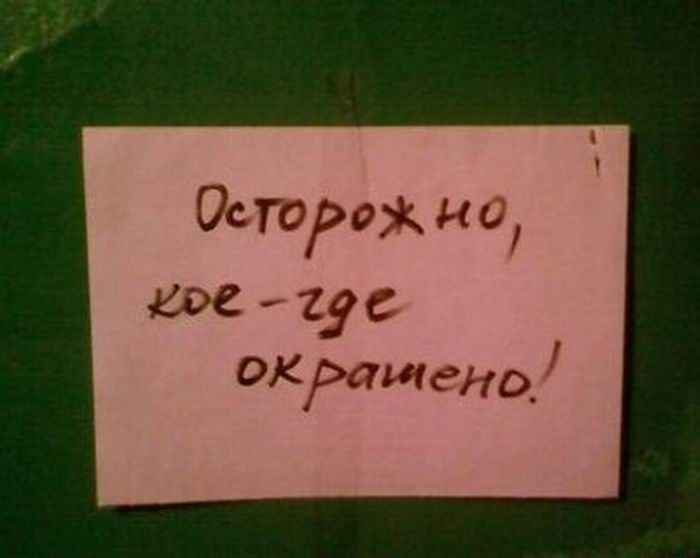 Осторожно,
кое-где
окрашено!